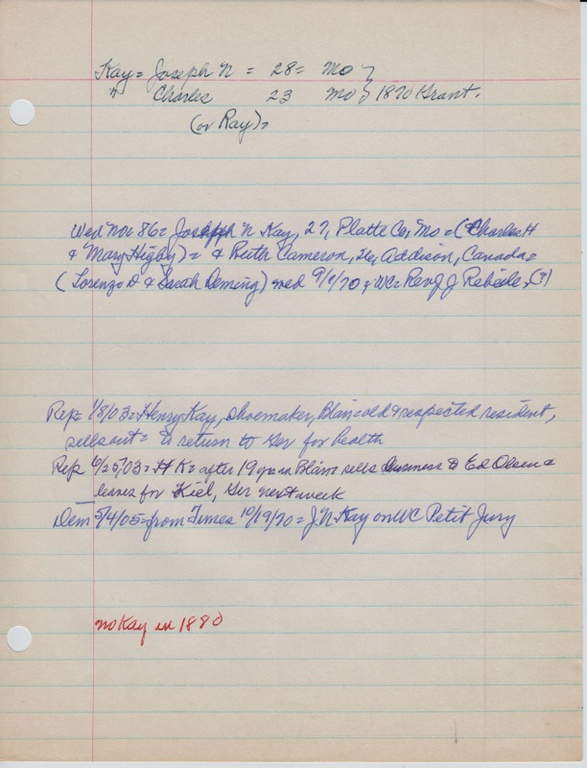 Kay = Joseph N = 28 = Mo }
" Charles 23 Mo } 1870 Grant.
(or Ray) =
Wed Nov 86 = Joseph N Kay, 27, Platte Co, Mo = (Charles H
& Mary Higby) = & Ruth Cameron, 26, Addison, Canada =
(Lorenzo D & Sarah Deming) wed 9/8/70; WC = Rev J J (?)
Rep = 1/8/03 = Henry Kay, shoemaker, Blair = old & respected resident,
sells out = to return to Ger for health
Rep 6/25/03 = H K = after 19 yrs in Blair = sells business to Ed Olsen &
leaves for Kiel, Ger next week
Dem 5/4/05 = from Times 10/19/70 = J N Kay on WC Petit Jury
no Kay in 1880